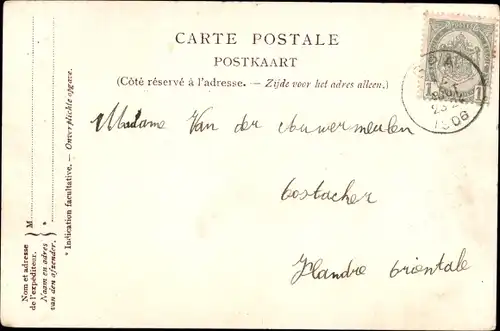 CARTE POSTALE
POSTKAART
(Côté réservé à l'adresse. — Zijde voor het adres alleen.)
1 1
1906
Madame Van der Auwermeulen
Oostacher
Flandre Orientale
Nom et adresse de l'expéditeur.
Naam en adres van den afzender.
M
*
* Indication facultative. — Onverplichte opgave.